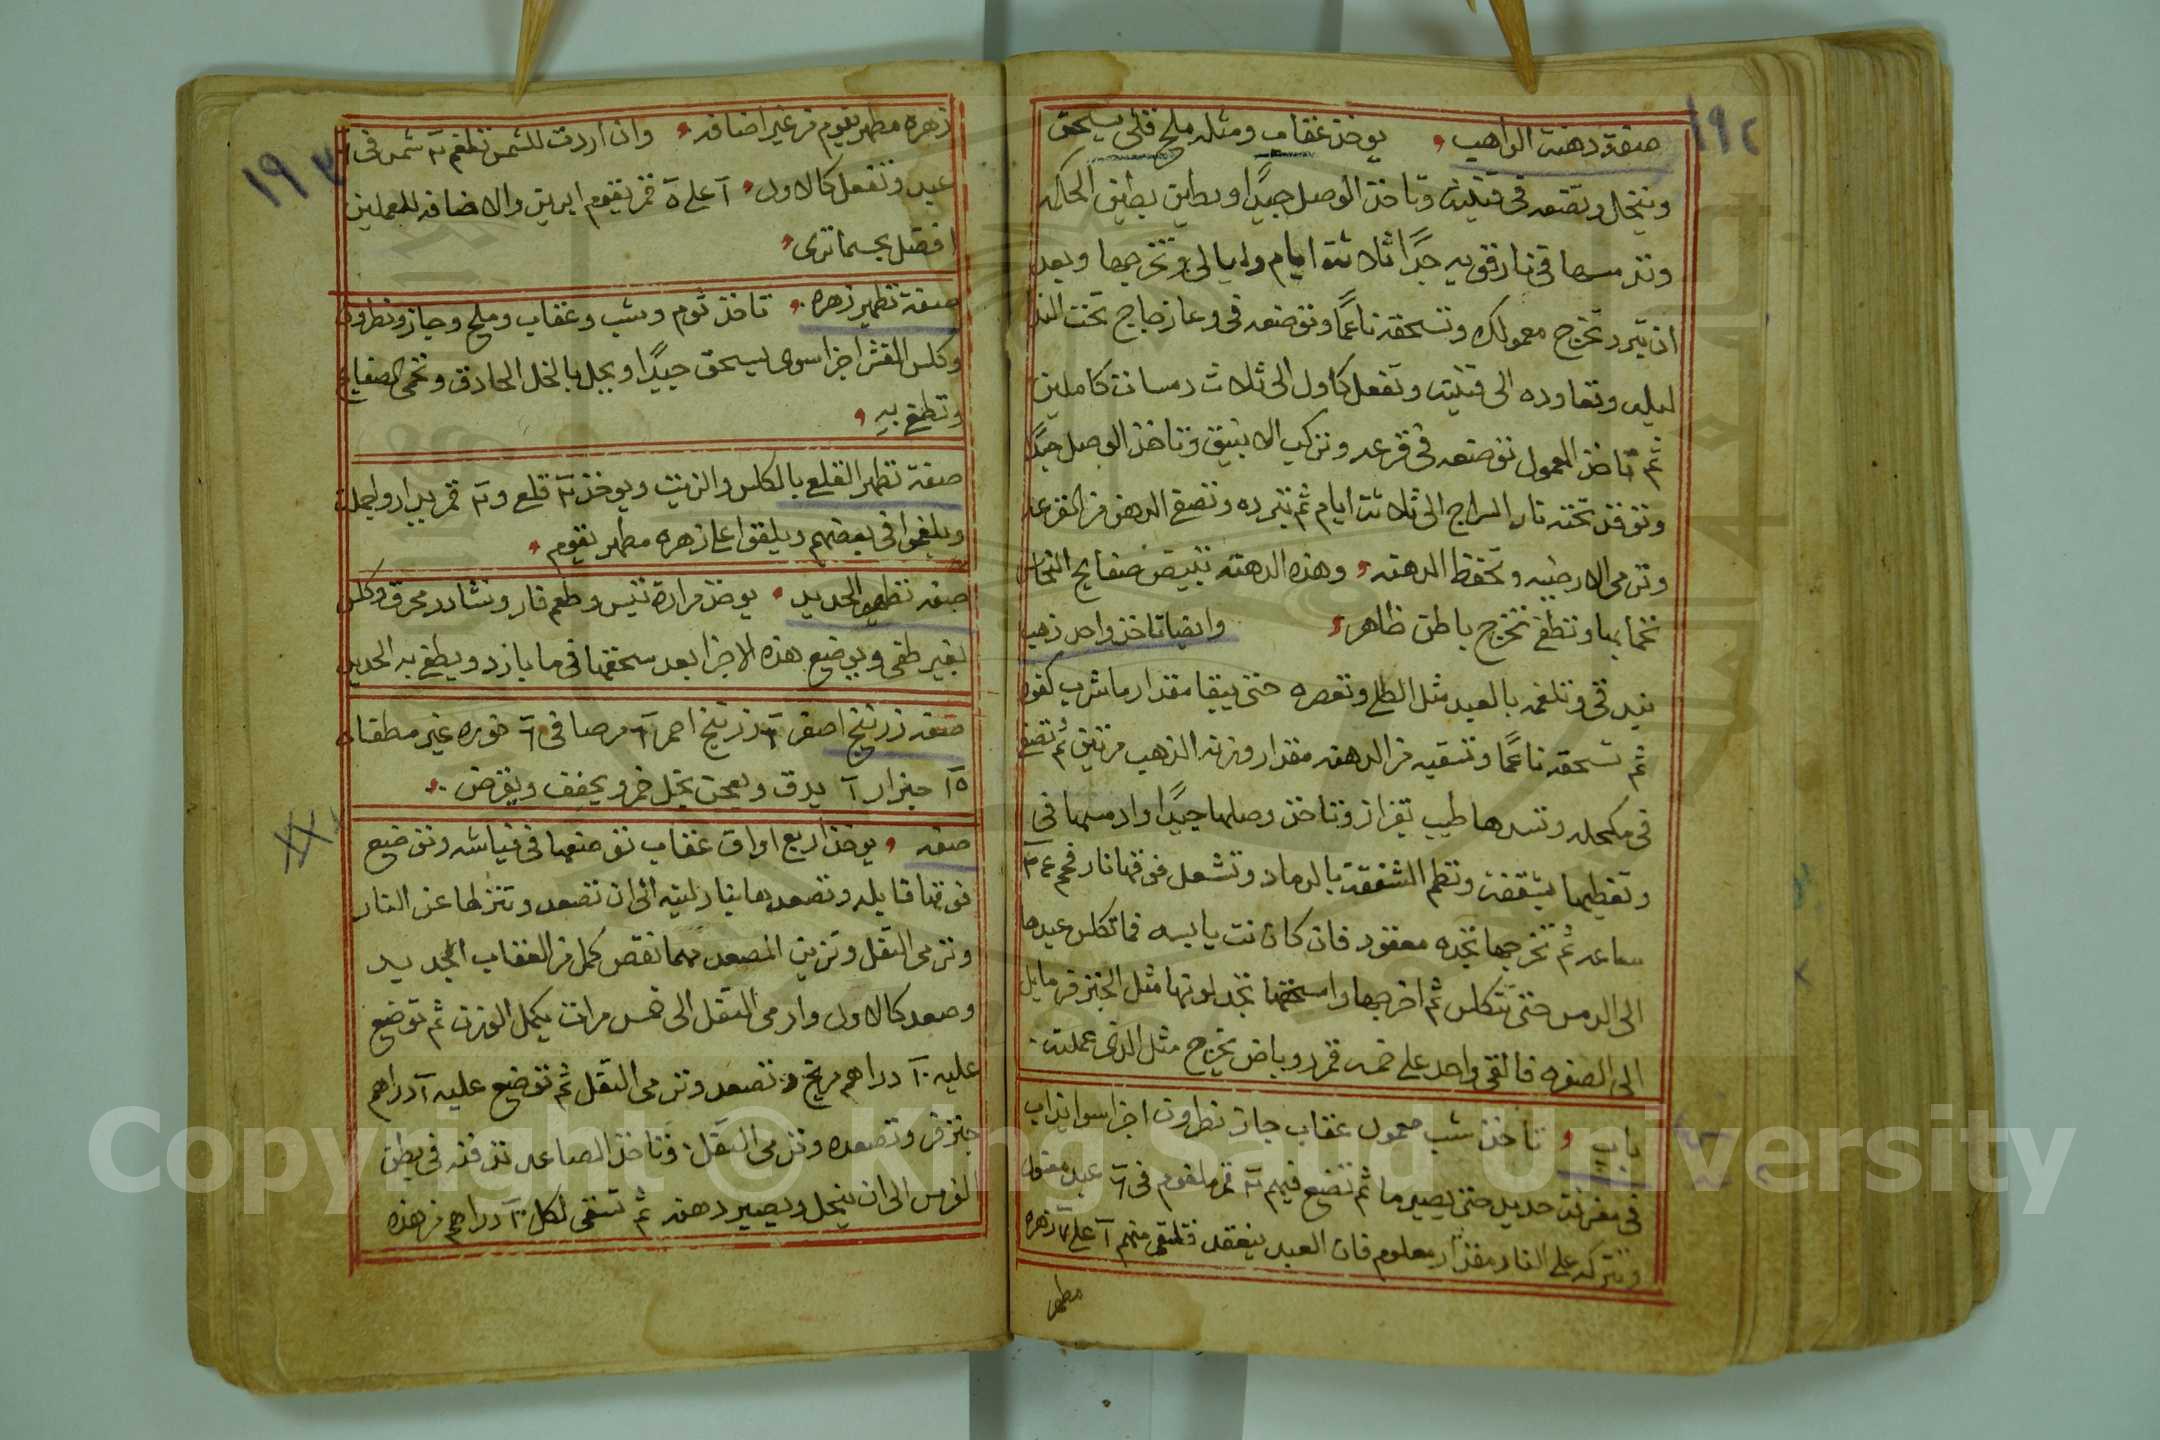 ١٩٢
صفة دهنت الراهب يوخذ عقاب ومثله ملح قلى يسحق
وينخل وتضعه فى قنينة وتاخذ الوصل جيدًا ويطين بطين الحكمه
وتدمسها فى نار قويه جدًا ثلاثة ايام وليالى وتخرجها وبعد
ان تبرد تخرج معمولك وتسحقه ناعمًا وتوضعه فى وعا زجاج تحت الندا
ليله وتعاوده الى قنينة وتفعل كاول الى ثلاث دمسات كاملين
ثم تاخذ المعمول توضعه فى قرعه وتركب الانبيق وتاخذ الوصل جيدًا
وتوقد تحته نار السراج الى ثلاثة ايام ثم تبرده وتصفى الدهن من القرعه
وترمى الارضيه وتحفظ الدهنه وهذه الدهنه تبيض صفايح النحاس
تحما بها وتطفى تخرج باطن ظاهر وايضا تاخذ واحد ذهب
يندقى وتلغمه بالعبد مثل الطلى وتعصره حتى يبقا مقدار ما شرب كفوه
ثم تسحقه ناعمًا وتسقيه من الدهنه مقدار وزنه الذهب مرتين ثم تضع
فى مكحله وتسدها طيب بقزاز وتاخذ وصلها جيدًا وادمسها فى
وتغطيها بشقفة وتطم الشقفة بالرماد وتشعل فوقها نار فحم ٢٤
ساعه ثم تخرجها تجده معقود فان كانت يابسه فما تكلس عيدها
الى الدمس حتى تتكلس ثم اخرجها واسحقها تجد لونها مثل الجنزفر مايل
الى الصفره فالقى واحد على خمسه قمر وبياض يخرج مثل الذى عملت
باب تاخذ شب معمول عقاب جاز نطرون اجزا سوا يذاب
فى مغرفة حديد حتى يصير ما ثم تضع فيهم قمر ملغوم فى ٦ عبد معقود
وتتركه على النار مقدار معلوم فان العبد ينعقد فتلقى منهم ١ على زهره
مطهر
١٩٣
زهره مطهر تقوم من غير اضافه وان اردت للشمس تلغم شمس فى ٦
عبد وتفعل كالاول ١ على ٥ قمر تقوم ابريز والاضافه للعملين
افضل بحسما ترى
صفة تطهير زهره تاخذ ثوم وشب وعقاب وملح وجاز ونطرون
وكلس القشر اجزا سوى يسحق جيدًا ويجبل بالخل الحادق وتحمى الصفايح
وتطفى بيه
صفة تطهر القلع بالكلس والزيت ويوخذ قلع و قمر يدار والجملة
ويلغموا فى بعضهم ويلقوا على زهره مطهر تقوم
صفه تطهير الحديد يوخذ مرارة تيس وطعم فار ونشادر محرق وكلس
بغير طفى ويوضع هذه الاجزا بعد سحقها فى ما بازرد ويطفى به الحديد
صفه زرنيخ اصفر زرنيخ احمر مرصافى نوره غير مطفاه
١٥ جنزار ١ يدق ويعجن بخل خمر ويجفف ويقرض
صفه يوخذ اربع اواق عقاب توضعها فى فياشه وتوضع
فوقها قابله وتصعدها بنار لينه الى ان تصعد وتنزلها عن النار
وترمى الثقل وتزين المصعد مهما نقص كمل من العقاب الجديد
وصعد كالاول وارمى الثقل الى خمس مرات يكمل الوزن ثم توضع
عليه ١٠ دراهم مريخ وتصعد وترمى الثقل ثم توضع عليه دراهم
جنزفر وتصعده وترمى الثقل وتاخذ الصاعد تدفنه فى بطن
الفرس الى ان ينحل ويصير دهنه ثم تسقى لكل ١٠ دراهم من هذه
Copyright © King Saud University